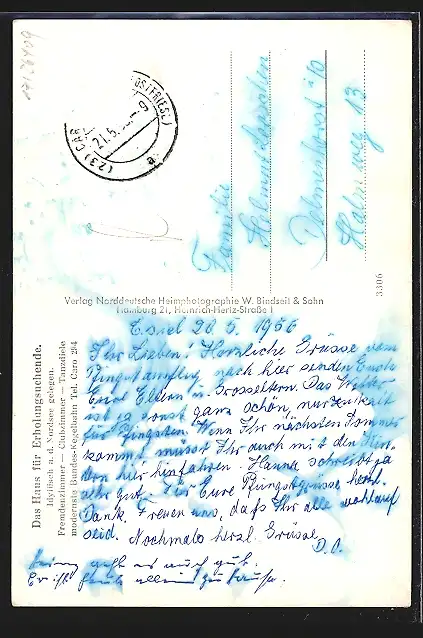 Das Haus für Erholungsuchende.
Idyllisch a. d. Nordsee gelegen.
Fremdenzimmer — Clubzimmer — Tanzdiele
modernste Bundes-Kegelbahn Tel. Caro 294
Verlag Norddeutsche Heimphotographie W. Bindseil & Sohn
Hamburg 21, Heinrich-Hertz-Straße 1
3306
(23) CAR OSTFRIESL)
21.5.
e
Familie
Helmut
Delmenhorst i/O
Weg 13
Esiel 20. 5. 1956
Ihr Lieben! Herzliche Grüsse vom
Pfingstausflug nach hier senden Euch
Eure Eltern u. Grosseltern. Das Wetter
ist ja sonst ganz schön, nur zu kalt
für Pfingsten. Wenn Ihr nächsten Sommer
kommt, müsst Ihr auch mit den Kin-
dern hier hinfahren. Hanna schreibt ja
sehr gut. Für Eure Pfingstgrüsse herzl.
Dank. Freuen uns, daß Ihr alle wohlauf
seid. Nochmals herzl. Grüsse
D. O.
geht es auch gut.
Er ist allein zu Hause.